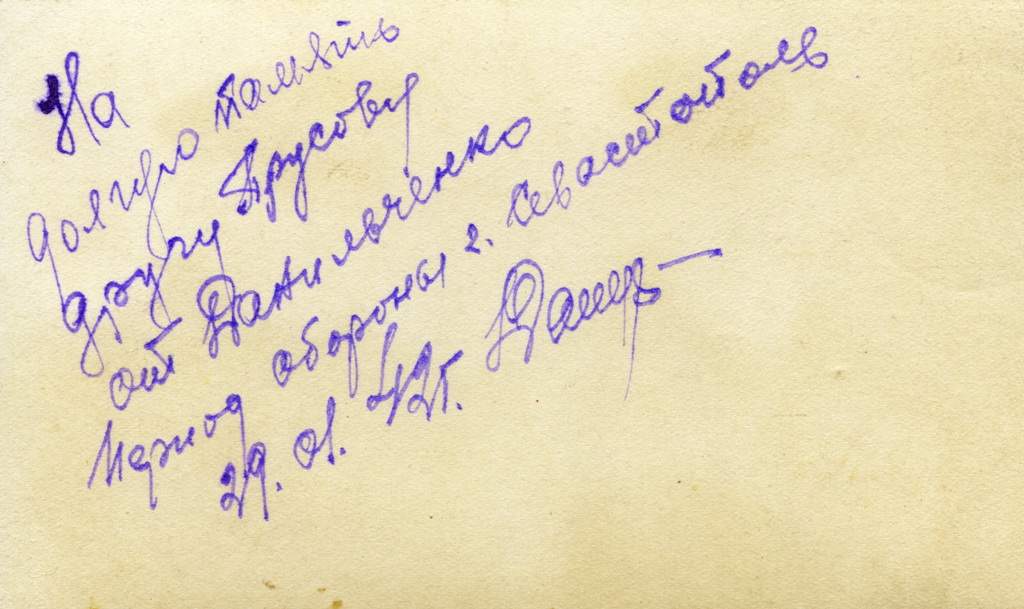 На
долгую память
другу Прусову
от Данильченко
период обороны г. Севастополь
29. 01. 42 г.